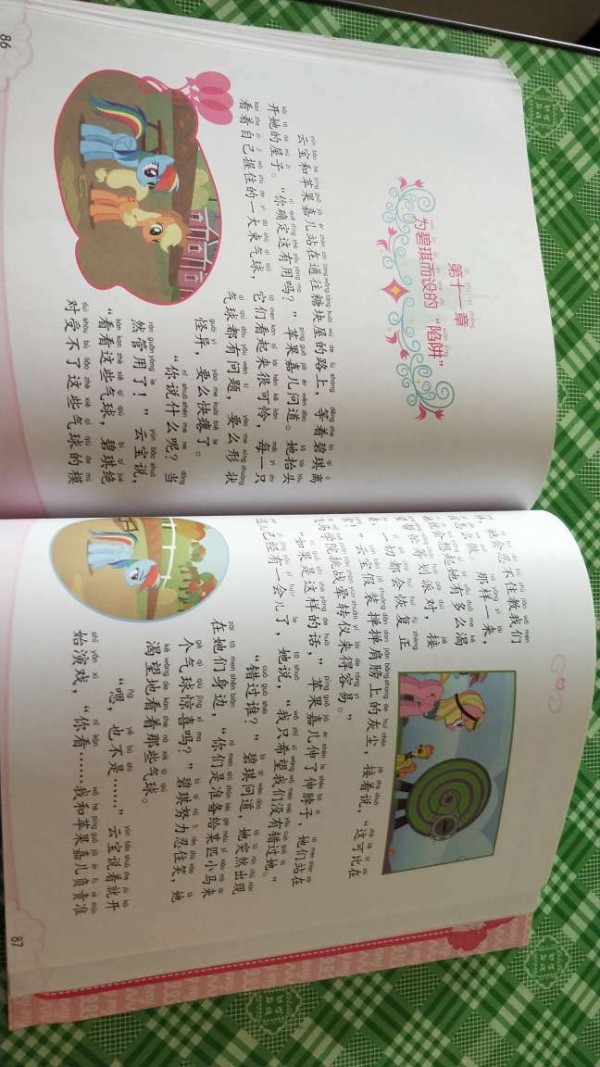 第十一章
为碧琪而设的“陷阱”
云宝和苹果嘉儿站在通往糖块屋的路上，等着碧琪离
开她的屋子。“你确定这有用吗？”苹果嘉儿问道。她抬头
看着自己握住的一大束气球，它们看起来很可怜，每一只
气球都有问题，要么形状
怪异，要么快瘪了。
“你说什么呢？当
然管用了！”云宝说，
“看看这些气球，碧琪绝
对受不了这些气球的模
86
就会忍不住教我们
怎么做。那样一来，
她就会想起她有多么渴
筹划派对，接
一切都会恢复正
”云宝假装掸掸肩膀上的灰尘，接着说，“这可比在
学院挑战晕转仪来得容易。”
“如果是这样的话，”苹果嘉儿伸了伸脖子，她们站在
已经有一会儿了，她说，“我只希望我们没有错过她。”
“错过谁？”碧琪问道，她突然出现
在她们身边，“你们是准备给某匹小马来
个气球惊喜吗？”碧琪努力忍住笑，她
渴望地看着那些气球。
“嗯，也不是……”云宝说着就开
始演戏，“你看……我和苹果嘉儿负责准
87